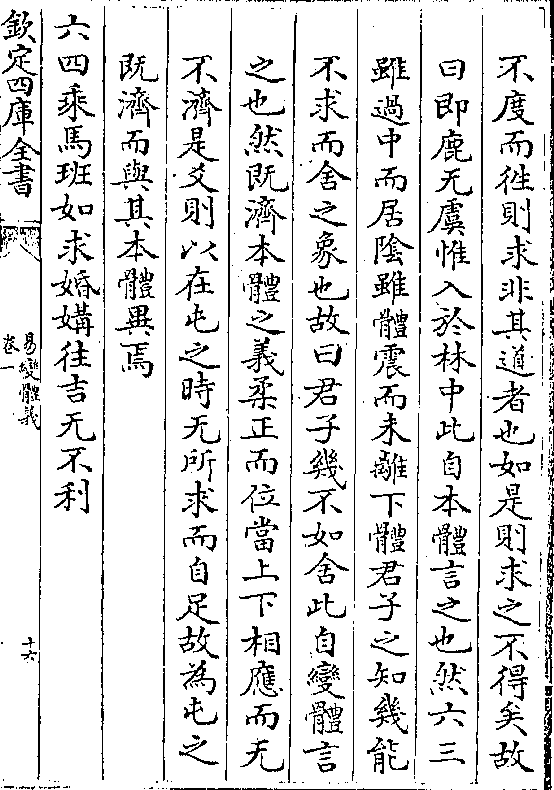 不度而徃則求非其道者也如是則求之不得矣故
曰即鹿无虞惟入於林中此自本體言之也然六三
雖過中而居陰雖體震而未離下體君子之知幾能
不求而舍之象也故曰君子幾不如舍此自變體言
之也然既濟本體之義柔正而位當上下相應而无
不濟是爻則以在屯之時无所求而自足故為屯之
既濟而與其本體異焉
六四乘馬班如求婚媾往吉无不利
欽定四庫全書
易變體義
卷一
十六